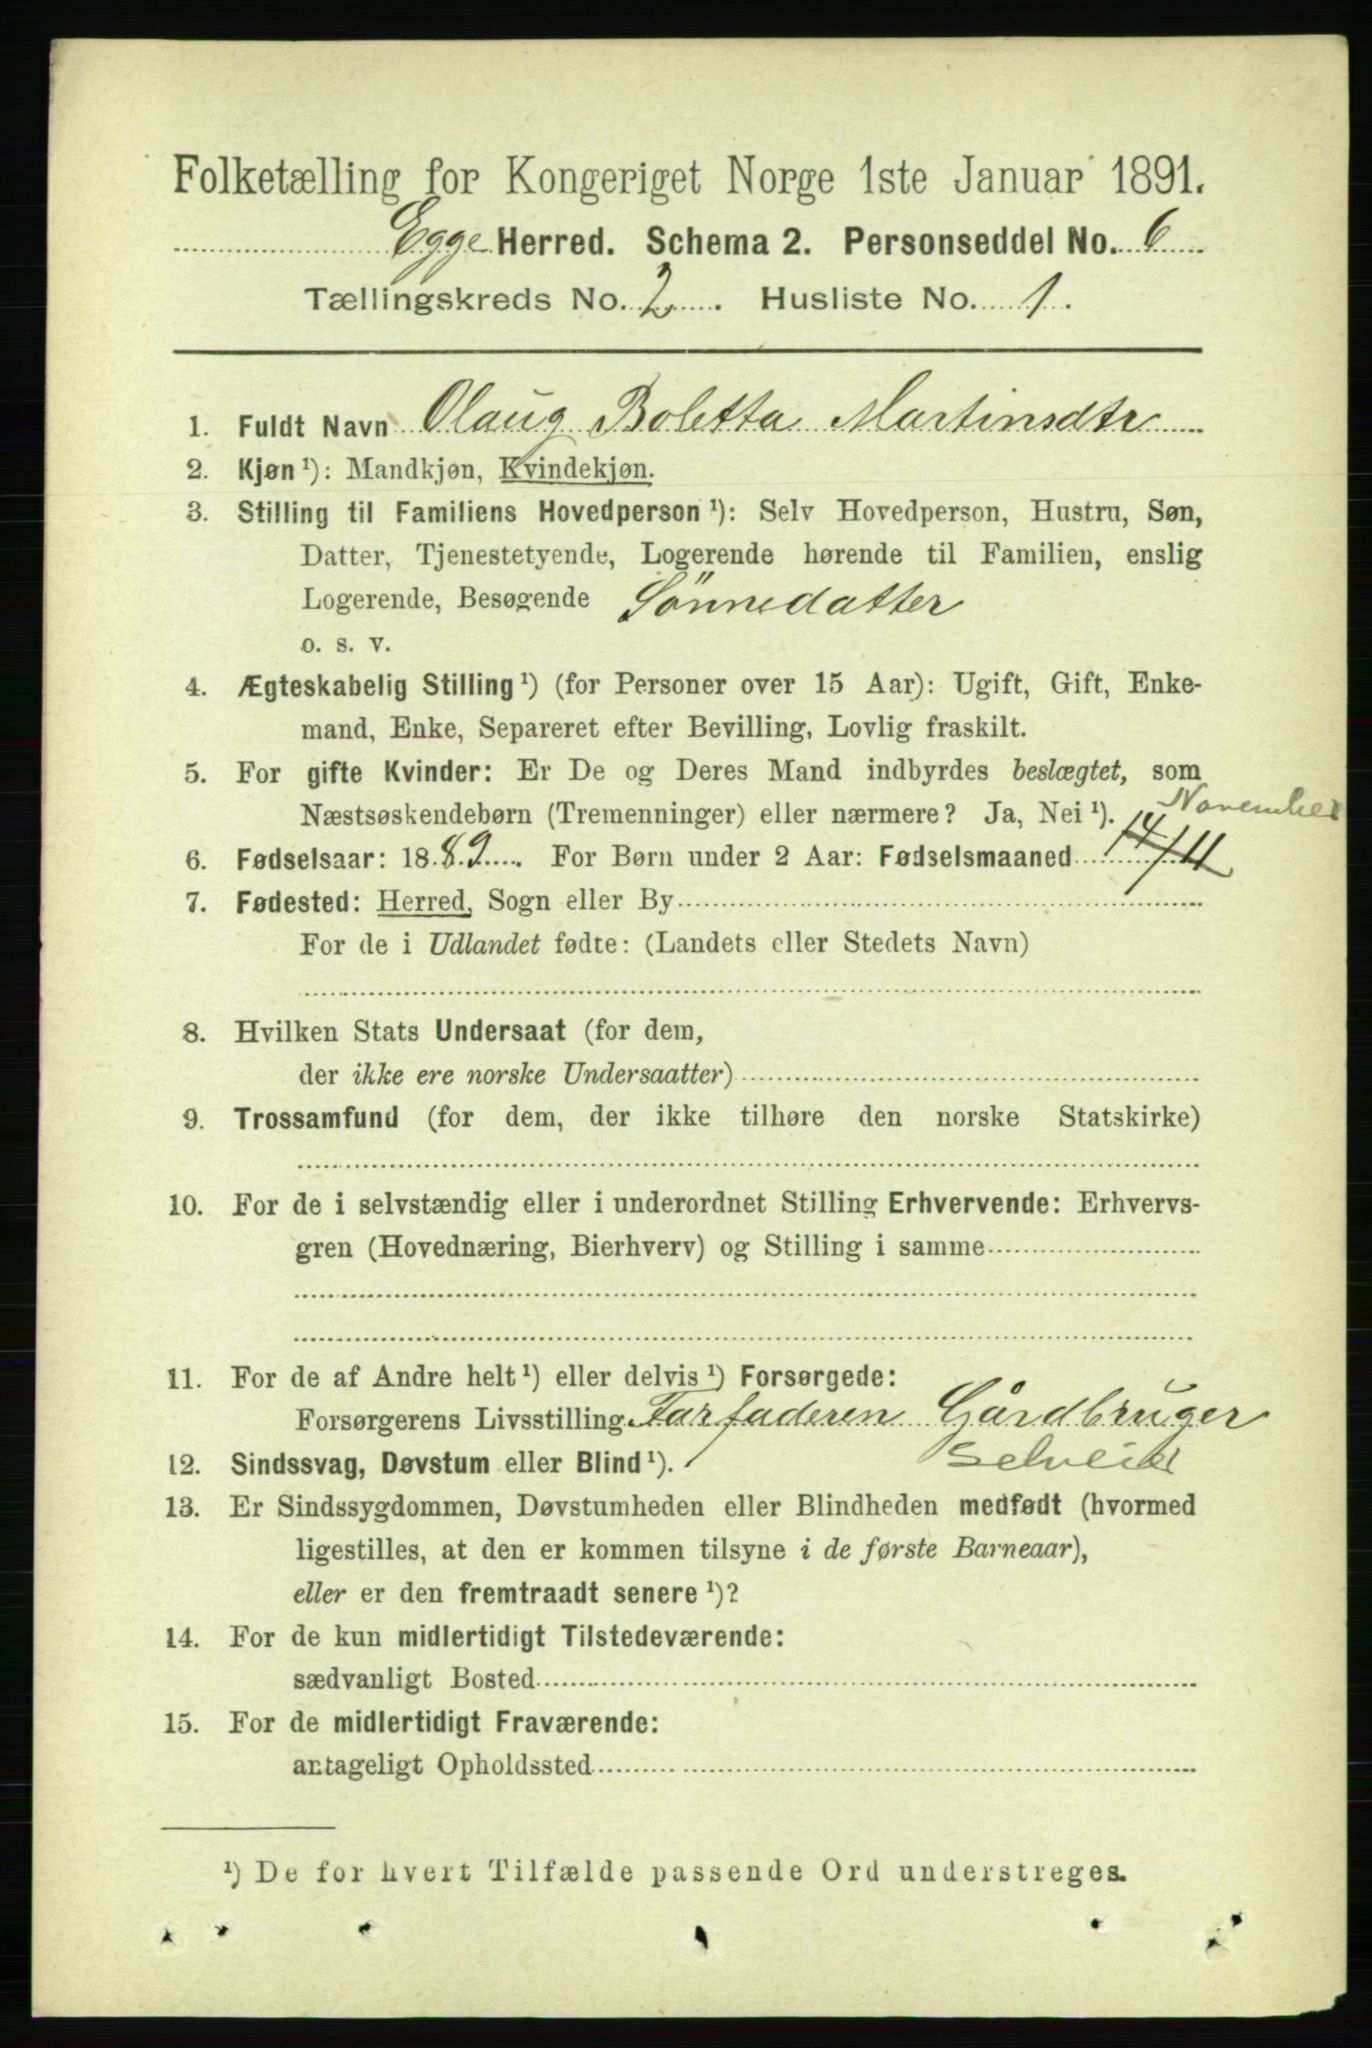 Folketælling for Kongeriget Norge 1ste Januar 1891.
Egge Herred. Schema 2. Personseddel No. 6
Tællingskreds No. 2. Husliste No. 1.
1. Fuldt Navn Olaug Boletta Martinsdtr
2. Kjøn ¹): Mandkjøn, Kvindekjøn.
3. Stilling til Familiens Hovedperson ¹): Selv Hovedperson, Hustru, Søn,
Datter, Tjenestetyende, Logerende hørende til Familien, enslig
Logerende, Besøgende Sönnedatter
o. s. v.
4. Ægteskabelig Stilling ¹) (for Personer over 15 Aar): Ugift, Gift, Enke-
mand, Enke, Separeret efter Bevilling, Lovlig fraskilt.
5. For gifte Kvinder: Er De og Deres Mand indbyrdes beslægtet, som
Næstsøskendebørn (Tremenninger) eller nærmere? Ja, Nei ¹).
November
6. Fødselsaar: 1889. For Børn under 2 Aar: Fødselsmaaned 14/11
7. Fødested: Herred, Sogn eller By
For de i Udlandet fødte: (Landets eller Stedets Navn)
8. Hvilken Stats Undersaat (for dem,
der ikke ere norske Undersaatter)
9. Trossamfund (for dem, der ikke tilhøre den norske Statskirke)
10. For de i selvstændig eller i underordnet Stilling Erhvervende: Erhvervs-
gren (Hovednæring, Bierhverv) og Stilling i samme
11. For de af Andre helt ¹) eller delvis ¹) Forsørgede:
Forsørgerens Livsstilling Farfaderen Gårdbruger
Selveier
12. Sindssvag, Døvstum eller Blind ¹).
13. Er Sindssygdommen, Døvstumheden eller Blindheden medfødt (hvormed
ligestilles, at den er kommen tilsyne i de første Barneaar),
eller er den fremtraadt senere ¹)?
14. For de kun midlertidigt Tilstedeværende:
sædvanligt Bosted
15. For de midlertidigt Fraværende:
antageligt Opholdssted
¹) De for hvert Tilfælde passende Ord understreges.